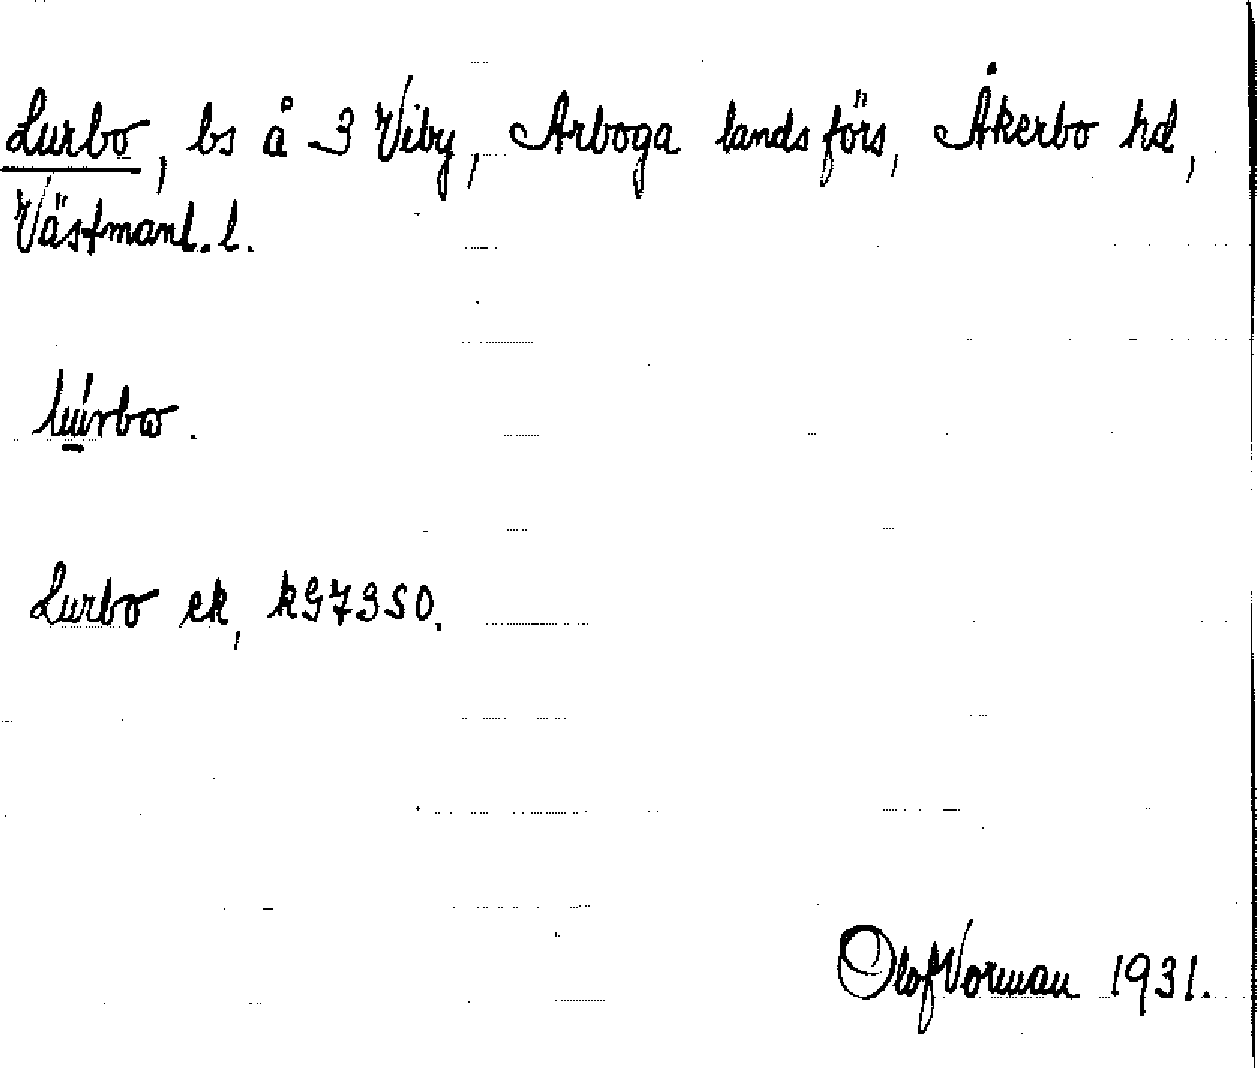 Lurbo, bs å 3 Viby, Arboga lands förs, Åkerbo hd,
Västmanl. l.
Lurbo ek, kG73SO.
Olof Vorman 1931.